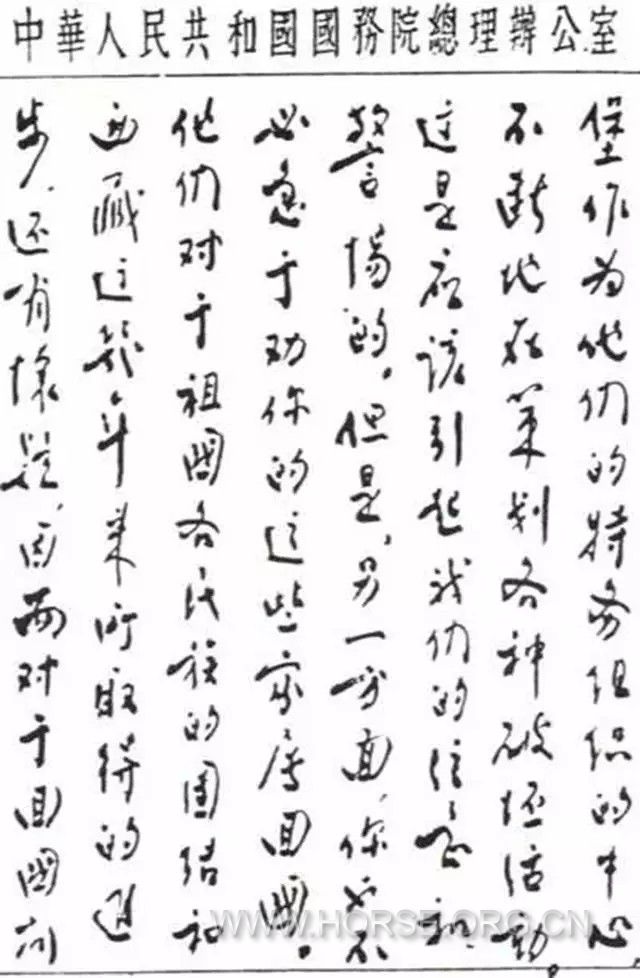 中華人民共和國國務院總理辦公室
堡作为他们的特务组织的中心
不断地在策划各种破坏活动。
这是应该引起我们的注意和
警惕的。但是，另一方面，你不
必急于劝你的这些家属回國。
他们对于祖國各民族的团结和
西藏这几年来所取得的进
步，还有懷疑，因而对于回國
WWW.HORSE.ORG.CN